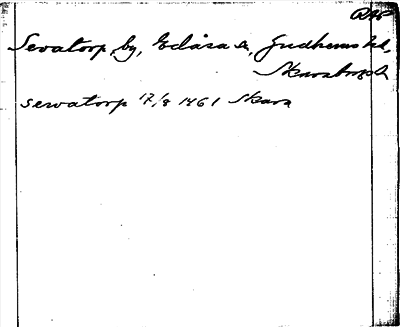 DAP
Sevatorp, by, Edåsa sn, Gudhems hd,
Skarab. l.
sewatorp 17/8 1461 Skara